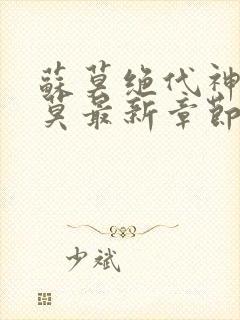 蘇莫绝代神
莫最新章節
少斌